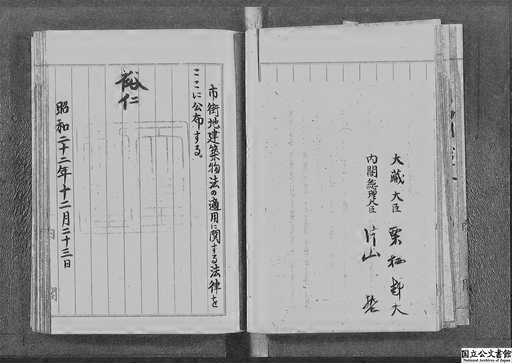 大蔵大臣 栗栖赳夫
内閣総理大臣 片山哲
市街地建築物法の適用に関する法律を
ここに公布する。
裕仁
昭和二十二年十二月二十三日
内
閣
国立公文書館
National Archives of Japan